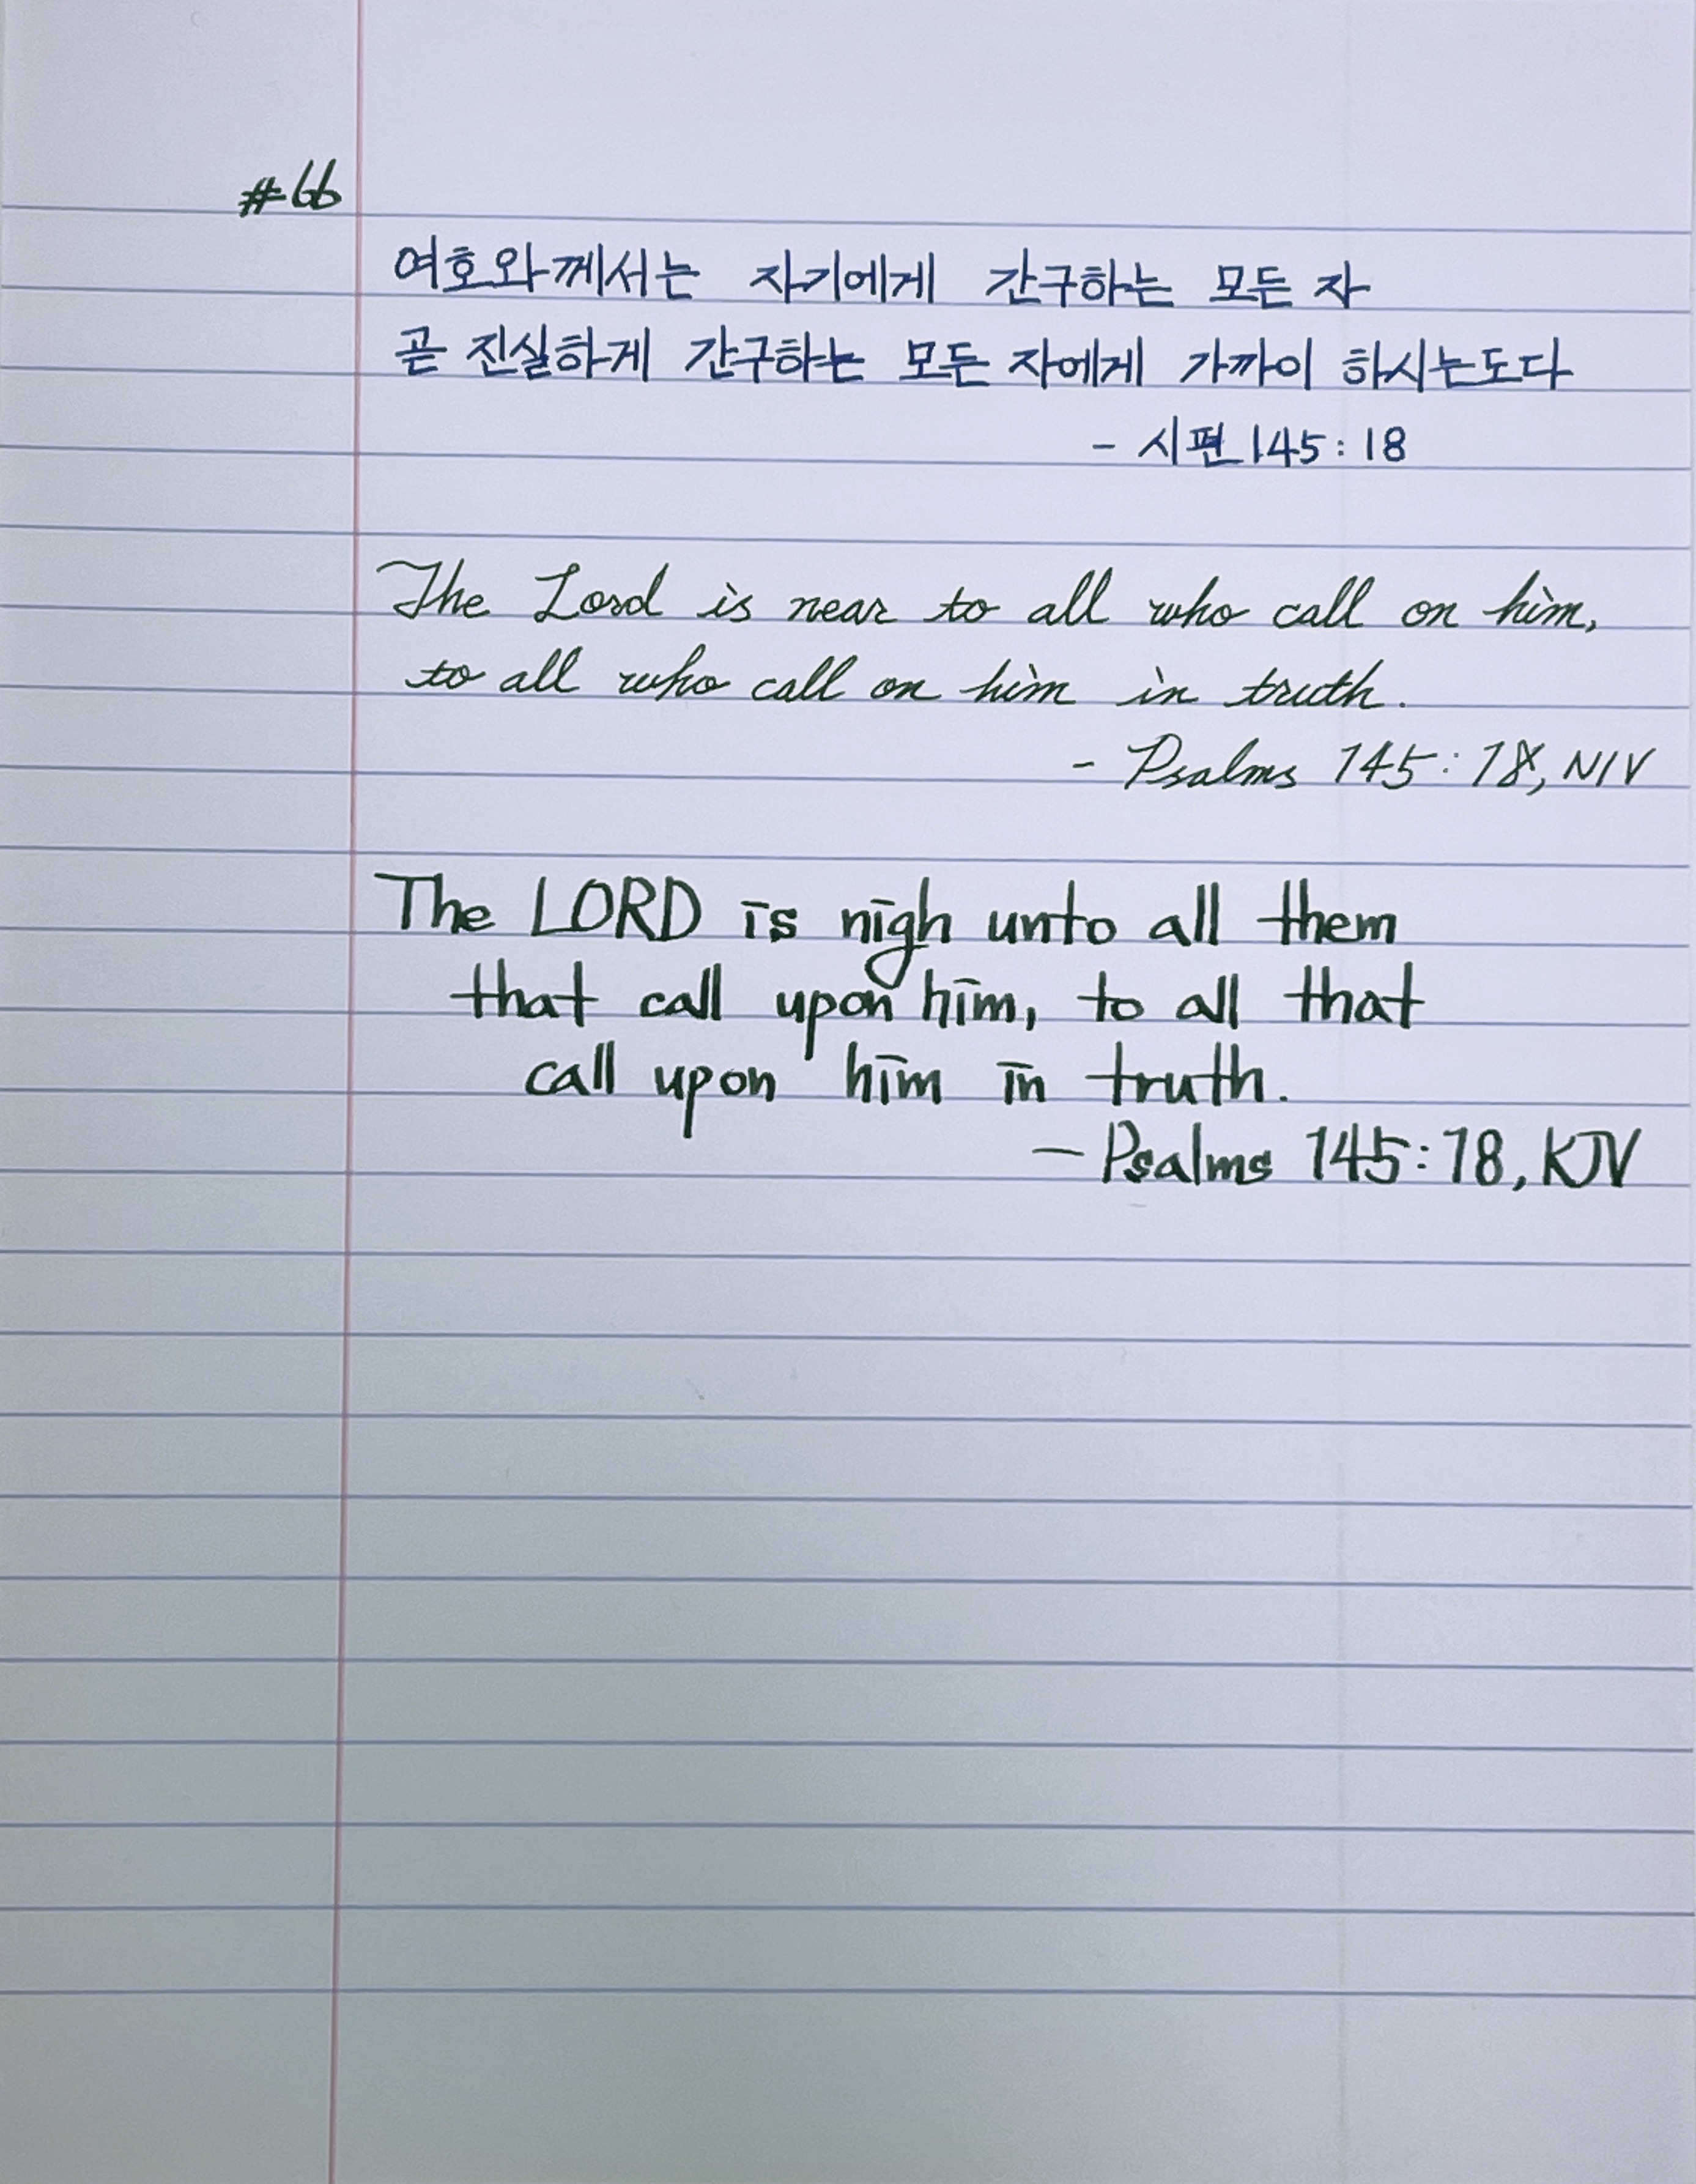 #66
여호와께서는 자기에게 간구하는 모든 자
곧 진실하게 간구하는 모든 자에게 가까이 하시는도다
- 시편 145:18
The Lord is near to all who call on him,
to all who call on him in truth.
- Psalms 145:18, NIV
The LORD is nigh unto all them
that call upon him, to all that
call upon him in truth.
- Psalms 145:18, KJV